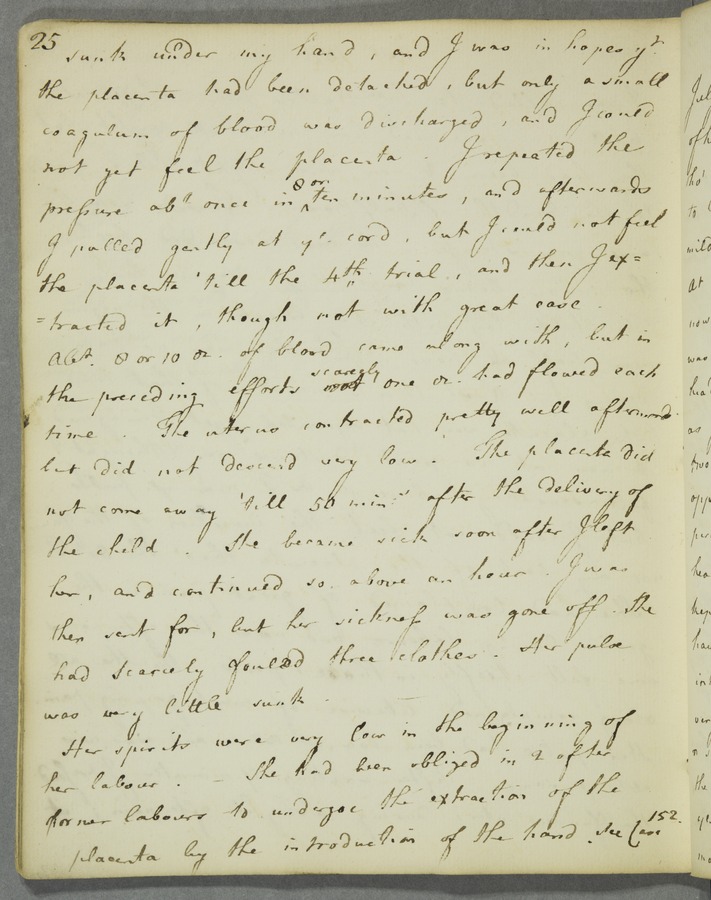 25
sunk under my hand, and I was in hopes yt.
the placenta had been detached, but only a small
coagulum of blood was discharged, and I could
not yet feel the placenta. I repeated the
pressure abt. once in 8 or ten minutes, and afterwards
I pulled gently at ye. cord, but I could not feel
the placenta 'till the 4th trial, and then I ex=
=tracted it, though not with great ease.
Abt. 8 or 10 oz. of blood came along with, but in
the preceding efforts scarcely one oz. had flowed each
time. The uterus contracted pretty well afterwards
but did not descend very low. The placenta did
not come away 'till 50 min:s after the delivery of
the child. She became sick soon after I left
her, and continued so above an hour. I was
then sent for, but her sickness was gone off. She
had scarcely fouled three clothes. Her pulse
was very little sunk.
Her spirits were very low in the beginning of
her labour. – She had been obliged in 2 of her
former labours to undergoe the extraction of the
placenta by the introduction of the hand. see Case 152.